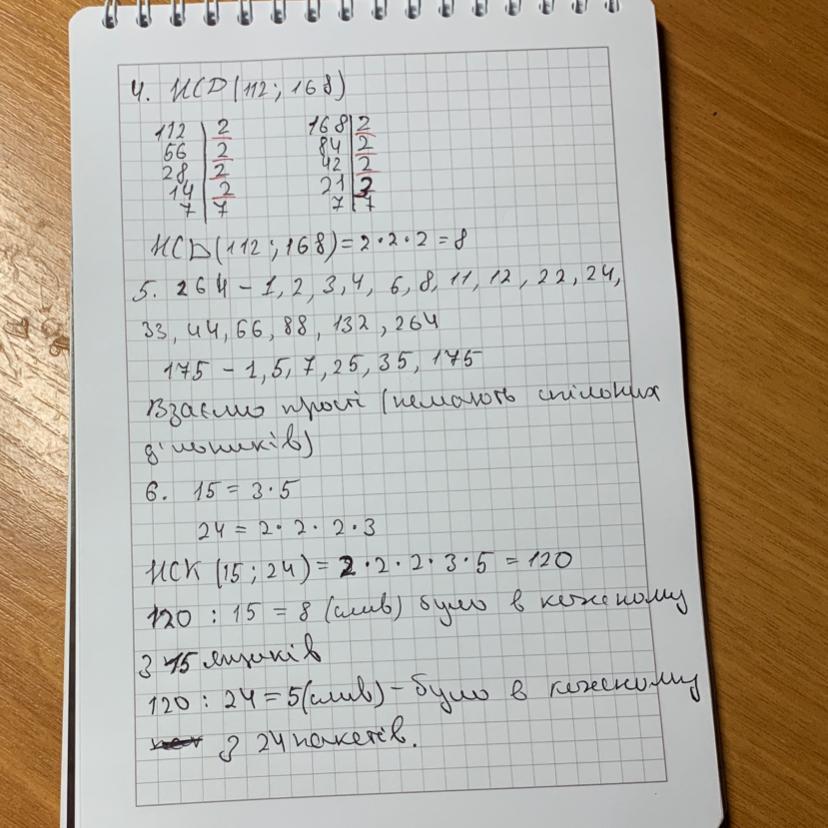 4. НСД (112; 168)
112 | 2   168 | 2
56 | 2   84 | 2
28 | 2   42 | 2
14 | 2   21 | 3
7 | 7   7 | 7
НСД (112; 168) = 2·2·2 = 8
5. 264 - 1, 2, 3, 4, 6, 8, 11, 12, 22, 24,
33, 44, 66, 88, 132, 264
175 - 1, 5, 7, 25, 35, 175
Взаємо прості (немають спільних
дільників)
6. 15 = 3·5
24 = 2·2·2·3
НСК (15; 24) = 2·2·2·3·5 = 120
120 : 15 = 8 (слив) було в кожному
з 15 ящиків
120 : 24 = 5 (слив) - було в кожному
з 24 пакетів.